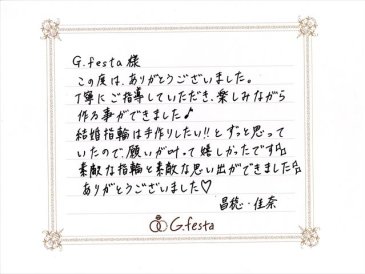 G.festa様
この度は、ありがとうございました。
丁寧にご指導していただき、楽しみながら
作る事ができました♪
結婚指輪は手作りしたい!!とずっと思って
いたので、願いが叶って嬉しかったです
素敵な指輪と素敵な思い出ができました
ありがとうございました♡
昌稔・佳奈
G.festa